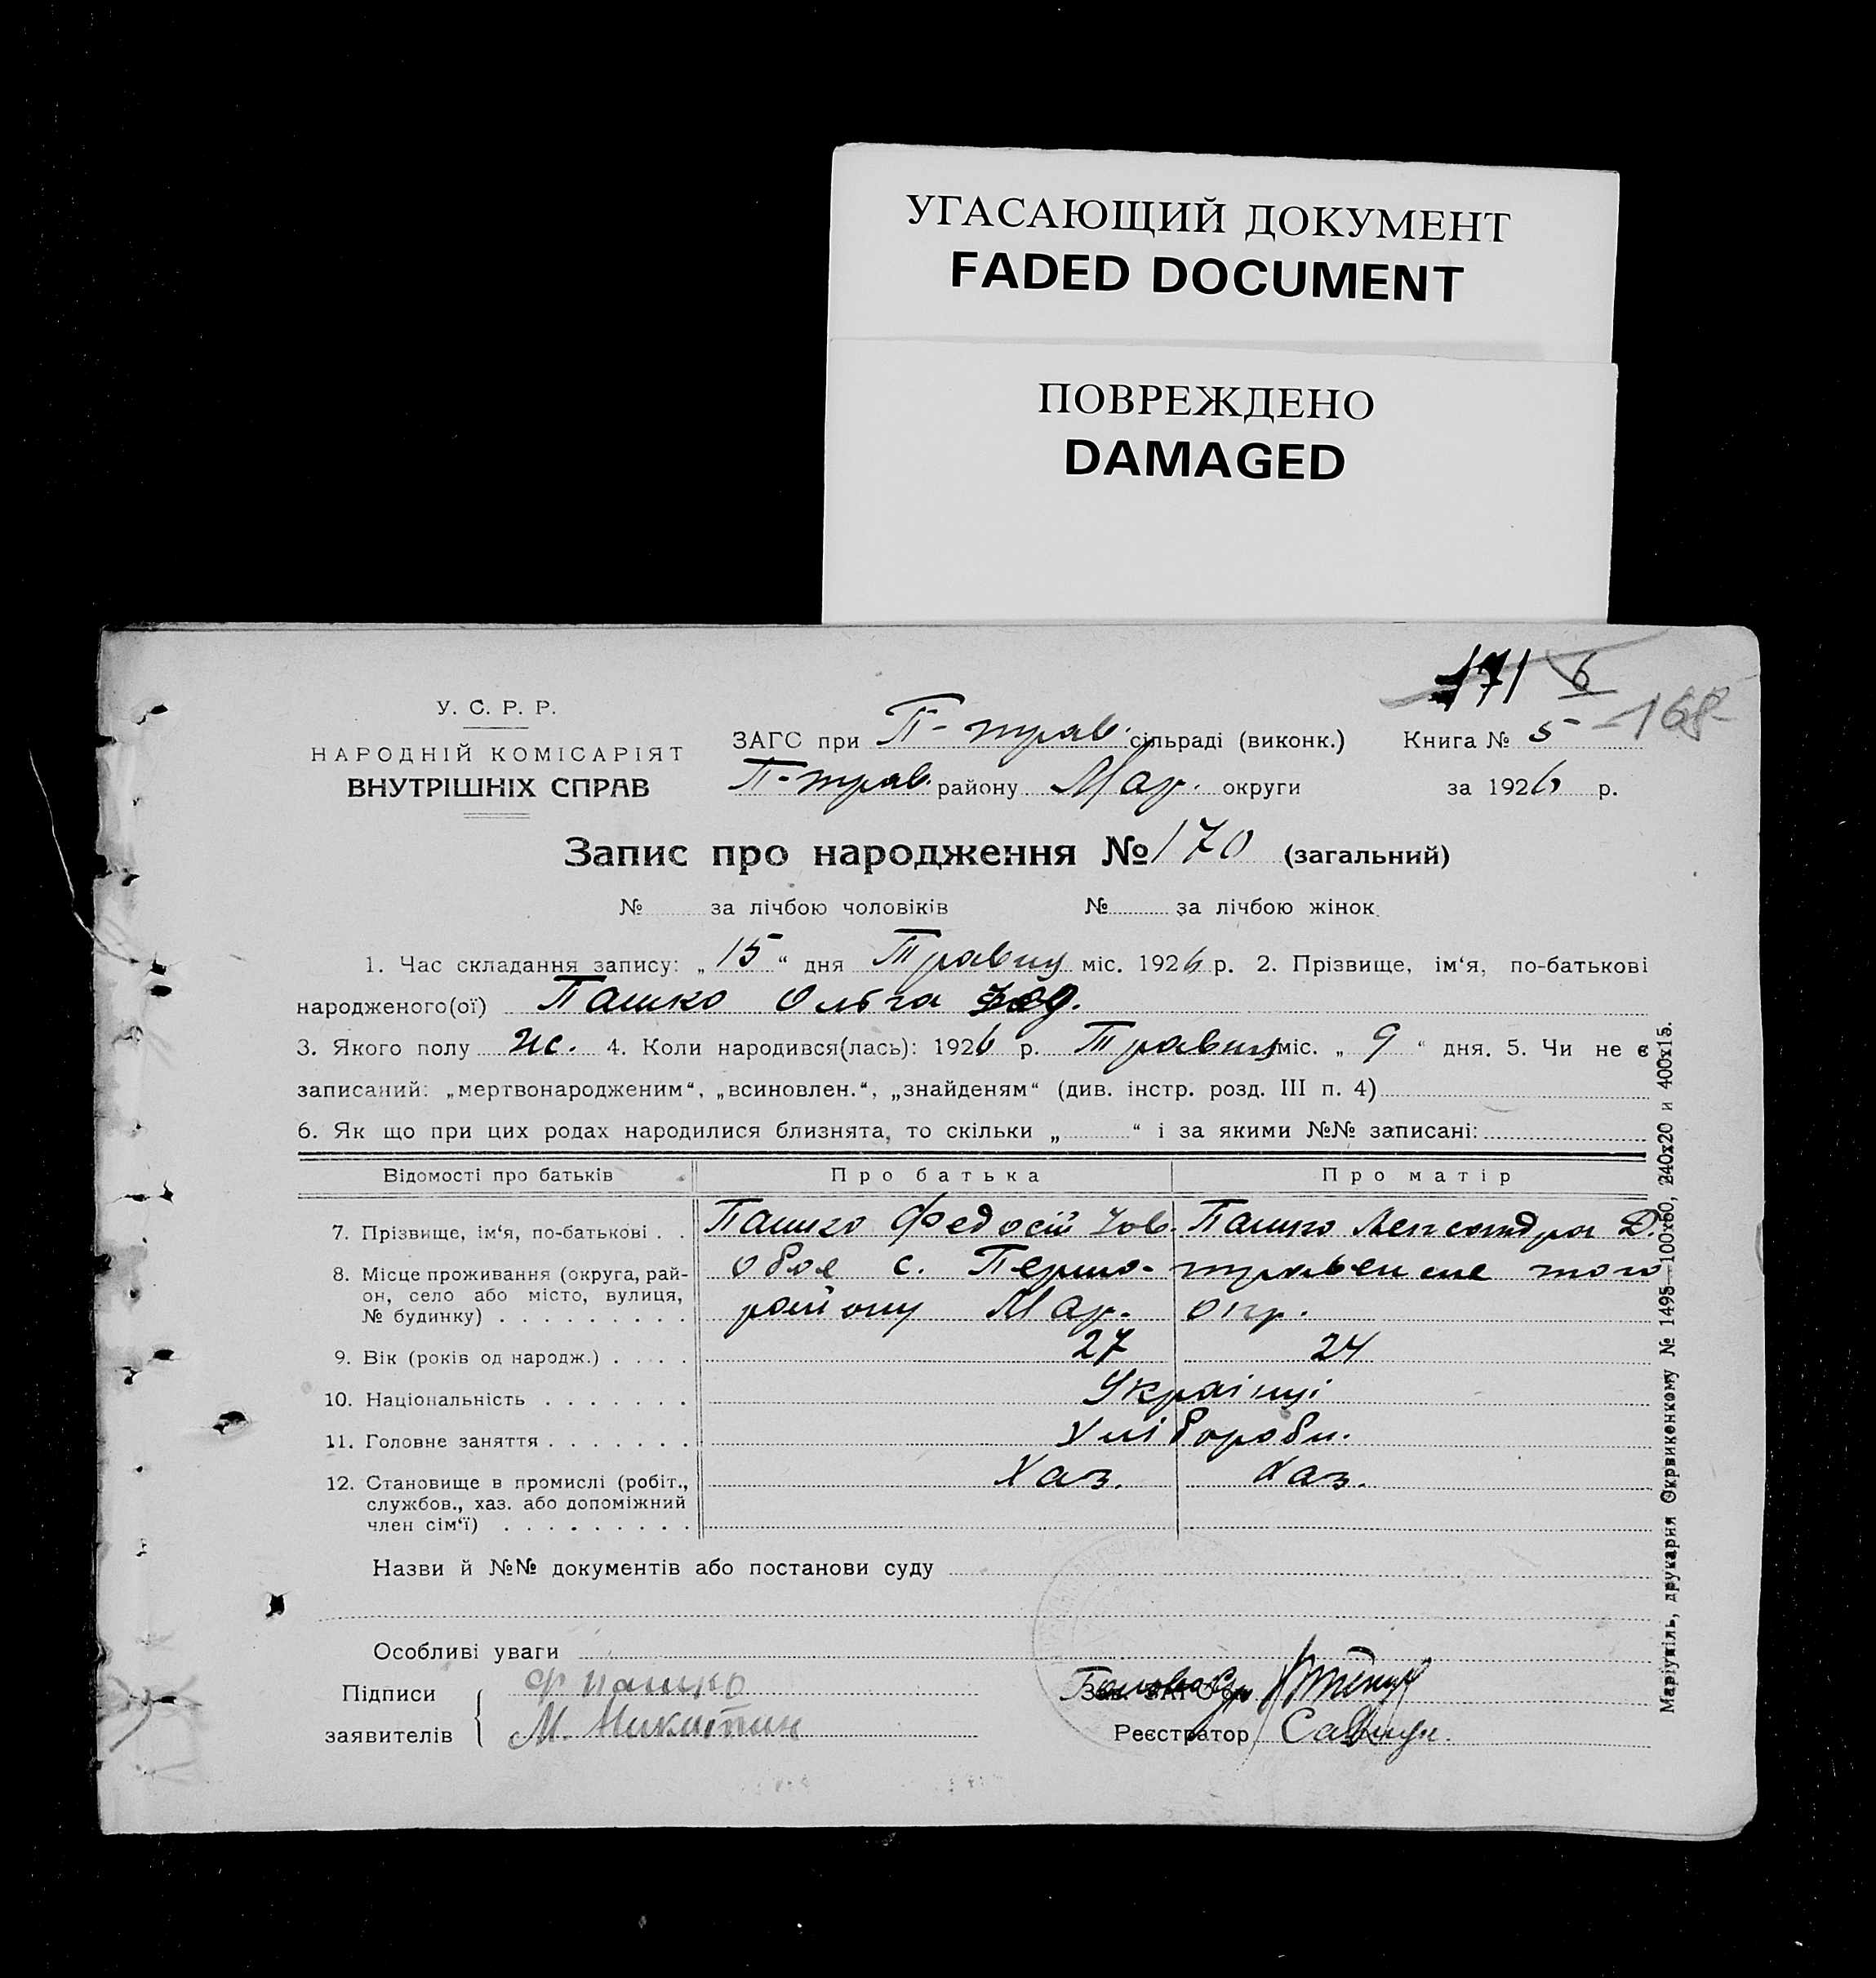 УГАСАЮЩИЙ ДОКУМЕНТ
FADED DOCUMENT
ПОВРЕЖДЕНО
DAMAGED
171 6
168
У. С. Р. Р.
НАРОДНІЙ КОМІСАРІЯТ
ВНУТРІШНІХ СПРАВ
ЗАГС при П-трав. сільраді (виконк.) Книга № 5
П-трав. району Мар. округи за 1926 р.
Запис про народження № 170 (загальний)
№ за лічбою чоловіків № за лічбою жінок
1. Час складання запису: „15“ дня Травня міс. 1926 р. 2. Прізвище, ім‘я, по-батькові
народженого(ої) Пашко Ольга Фед.
3. Якого полу ж. 4. Коли народився(лась): 1926 р. Травня міс. „9“ дня. 5. Чи не є
записаний: „мертвонародженим“, „всиновлен.“, „знайденям“ (див. інстр. розд. III п. 4)
6. Як що при цих родах народилися близнята, то скільки „ “ і за якими №№ записані:
Відомості про батьків Про батька Про матір
7. Прізвище, ім‘я, по-батькові . . Пашко Федосій Пашко Александра Д.
8. Місце проживання (округа, рай- обоє с. Першо-травенське того
он, село або місто, вулиця, району Мар. окр.
№ будинку) . . . . . . . . .
9. Вік (років од народж.) . . . . 27 24
10. Національність . . . . . . . Українці
11. Головне заняття . . . . . . . Хліборобн.
12. Становище в промислі (робіт., Хаз. Хаз.
службов., хаз. або допоміжний
член сім‘ї) . . . . . . . . .
Назви й №№ документів або постанови суду
Особливі уваги
Підписи Ф Пашко
заявителів М. Никитин
Зав. ЗАГС‘ом
Реєстратор
Маріупіль, друкарня Окрвиконкому № 1495—100х50, 240х20 и 400х15.